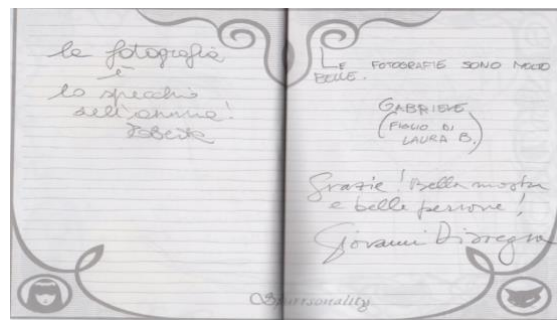 la fotografia
è
lo specchio
dell'anima!
LE FOTOGRAFIE SONO MOLTO
BELLE.
GABRIELE
(FIGLIO DI
LAURA B.)
Grazie! Bella mostra
e belle persone!
Giovanni
Purrsonality